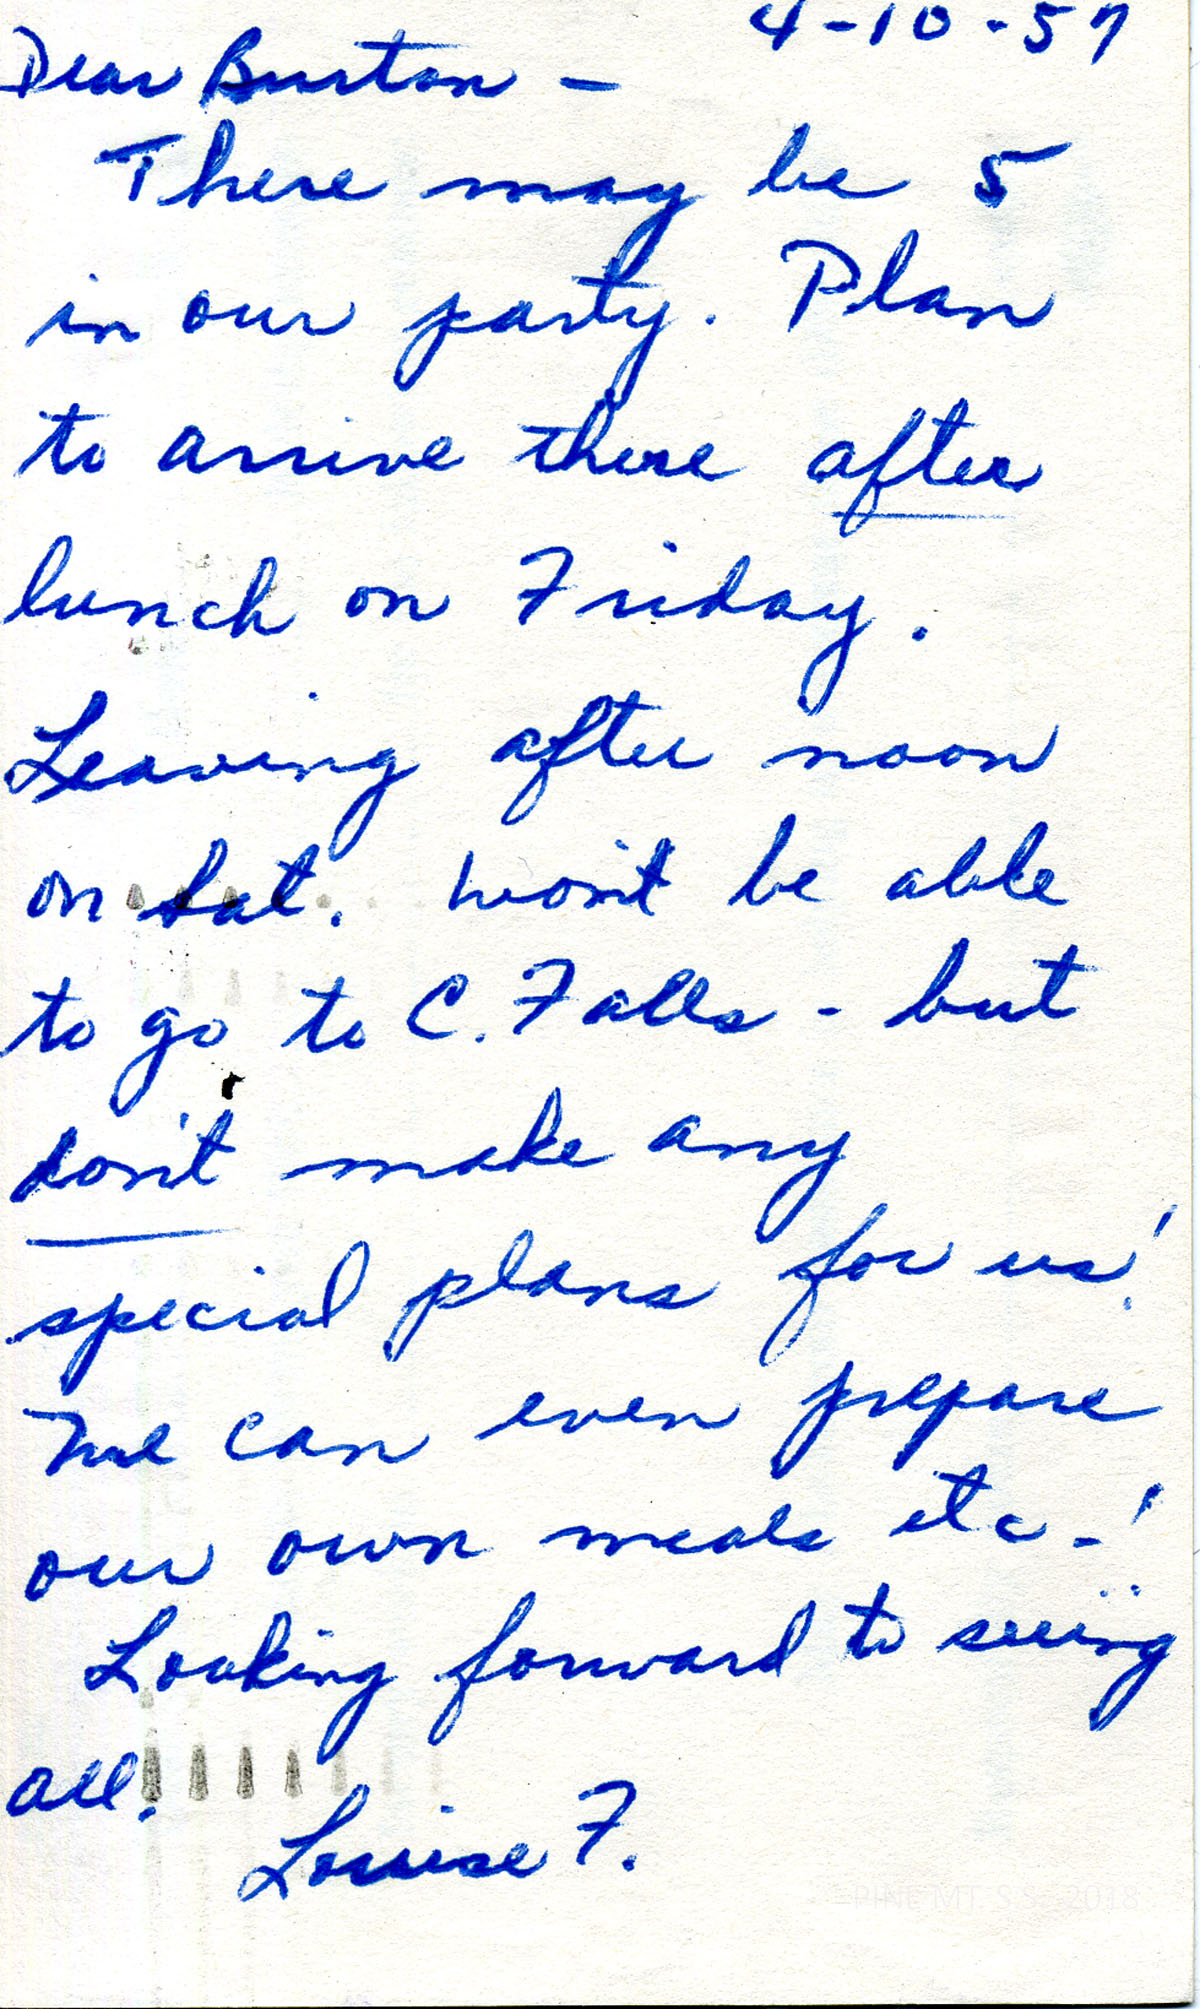 4-10-57
Dear Burton -
There may be 5
in our party. Plan
to arrive there after
lunch on Friday.
Leaving after noon
on Sat. Won't be able
to go to C. Falls - but
don't make any
special plans for us!
We can even prepare
our own meals etc -!
Looking forward to seeing
all.
Louise F.
PINE MT. S.S. 2018